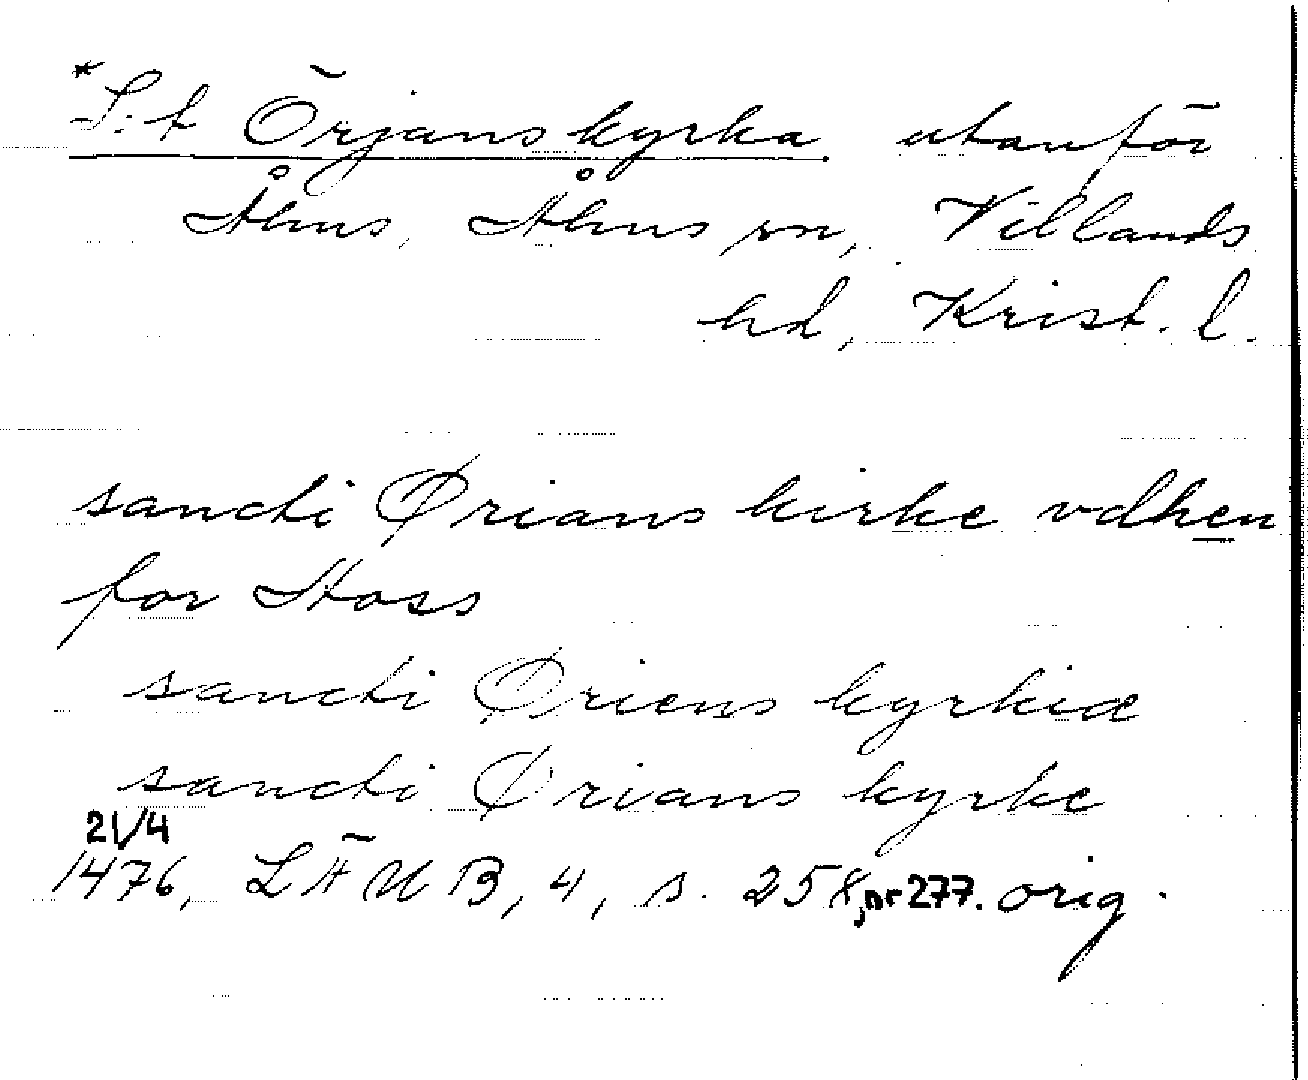 *S:t Örjans kyrka utanför
Åhus, Åhus sn, Villands
hd, Krist. l.
sancti Ørians kirke vdhen
for Hoss
sancti Øriens kyrkiæ
sancti Ørians kyrke
21/4
1476, LÄUB, 4, s. 258, nr 277. orig.